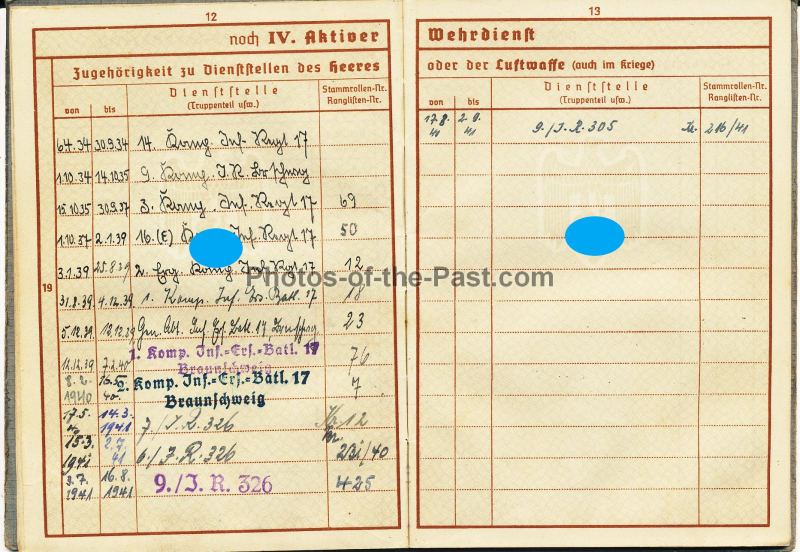 12
noch IV. Aktiver
Zugehörigkeit zu Dienststellen des Heeres
von
bis
Dienststelle
(Truppenteil usw.)
Stammrollen-Nr.
Ranglisten-Nr.
19
6.4.34 30.9.34 14. Komp. Inf. Regt 17
1.10.34 14.10.35 9. Komp. I.R.
15.10.35 30.9.37 3. Komp. Inf. Regt 17 69
1.10.37 2.1.39 16.(E) Inf. Regt 17 50
3.1.39 25.8.39 2. Erg. Komp. Inf. Rgt. 17 12
31.8.39 4.12.39 1. Komp. Inf. Ers. Batl. 17 18
5.12.39 Gen. Abt. Inf. Ers. Batl. 17 23
12.12.39 7.2.40 1. Komp. Inf.-Ers.-Batl. 17 76
Braunschweig
8.2. 16.5. 2. Komp. Inf.-Ers.-Batl. 17 7
1940 40. Braunschweig
17.5. 14.3. 7./I.R. 326 12
1941
15.3. 2.7. 6./I.R. 326 Nr.
1941 41 231/40
3.7. 16.8. 9./I.R. 326 425
1941 1941
13
Wehrdienst
oder der Luftwaffe (auch im Kriege)
von
bis
Dienststelle
(Truppenteil usw.)
Stammrollen-Nr.
Ranglisten-Nr.
17.8. 2.9. 9./I.R. 305 Nr. 216/41
41 41
Photos-of-the-Past.com